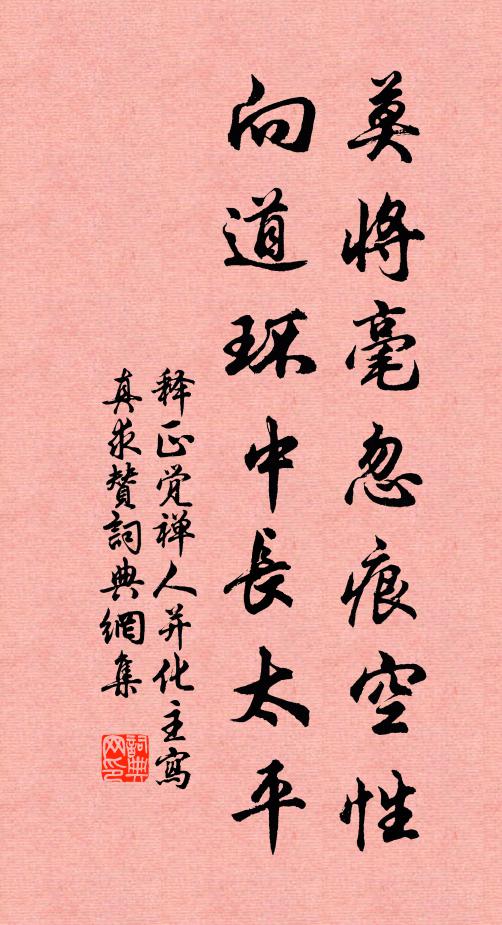 莫將毫忽痕空性
向道环中長太平
释正觉禅人并化主寫
真求贊詞典網集
詞典网印